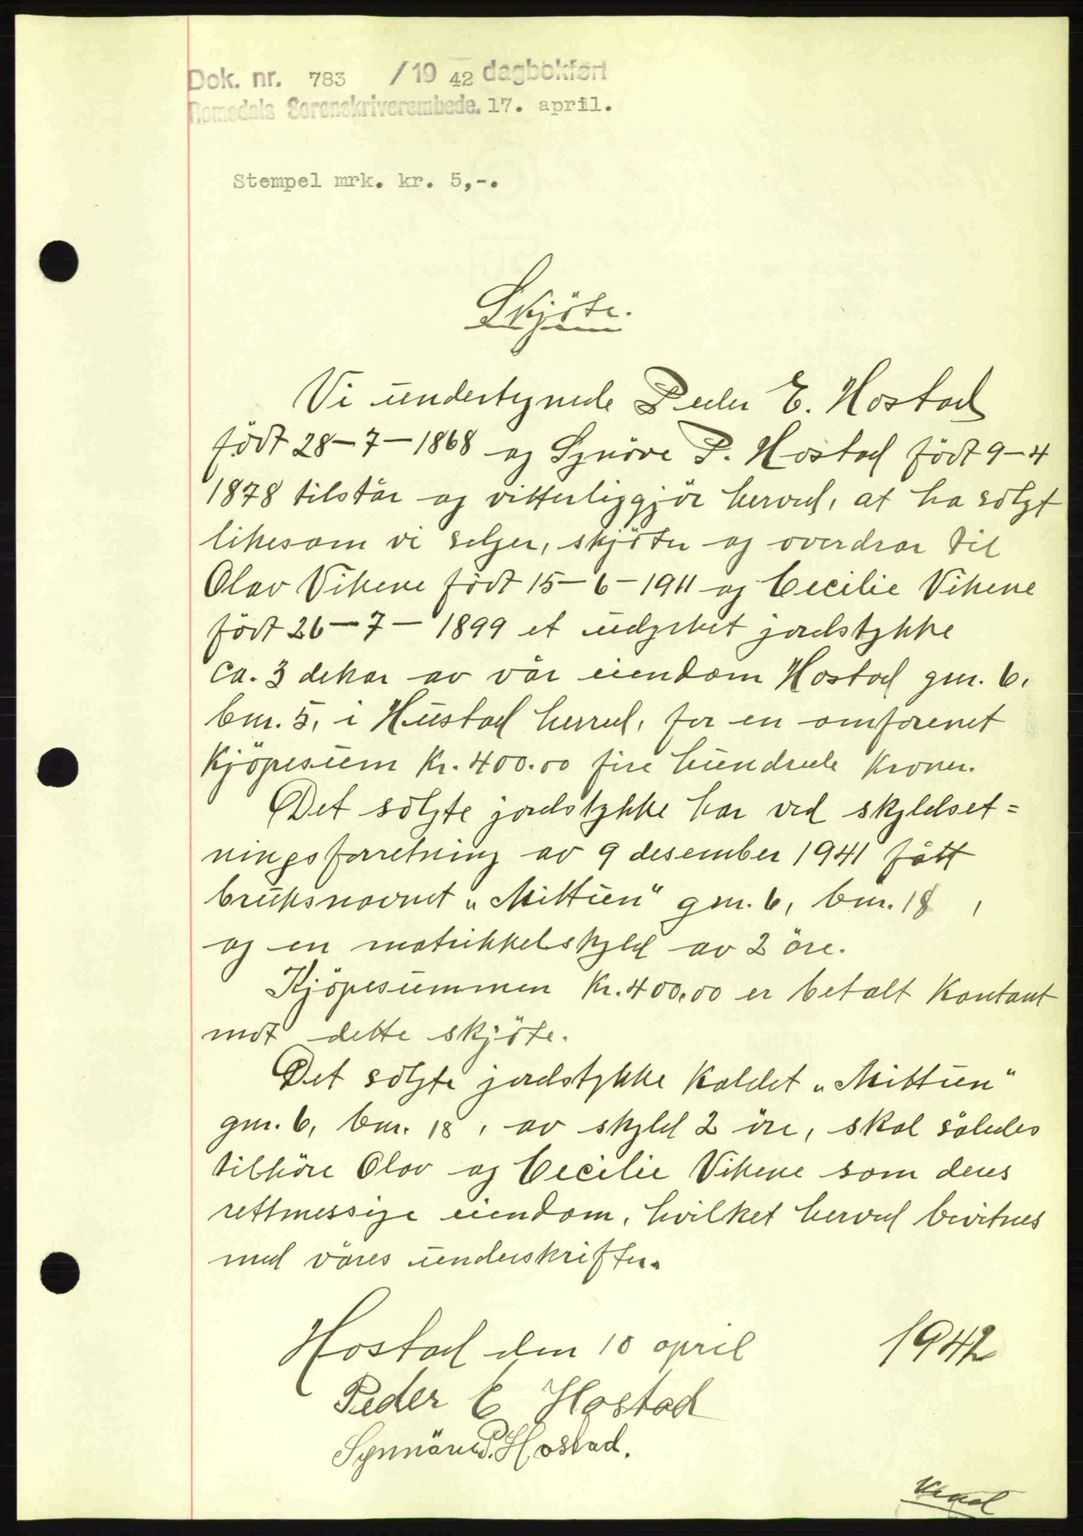 Dok. nr. 783 /19 42 dagbokført
Romsdals Sorenskriverembede. 17. april.
Stempel mrk. kr. 5,-.
Skjöte.
Vi undertegnede Peder E. Hostad
födt 28-7-1868 og Synöve P. Hostad födt 9-4
1878 tilstår og vitterliggjör herved, at ha solgt
likesom vi selger, skjöter og overdrar til
Olav Vikene födt 15-6-1911 og Cecilie Vikene
födt 26-7-1899 et udyrket jordstykke
ca. 3 dekar av vår eiendom Hostad gnr. 6,
bnr. 5, i Hustad herred, for en omforenet
Kjöpesum Kr. 400.00 fire hundrede Kroner.
Det solgte jordstykke har ved skyldset=
ningsforretning av 9 desember 1941 fått
bruksnavnet „Mittun" gnr. 6, bnr. 18,
og en matrikkelskyld av 2 öre.
Kjöpesummen Kr. 400.00 er betalt Kontant
mot dette skjöte.
Det solgte jordstykke Kaldet „Mittun"
gnr. 6, bnr. 18, av skyld 2 öre, skal således
tilhöre Olav og Cecilie Vikene som deres
rettmessige eiendom, hvilket herved bevitnes
med våres underskrifter.
Hostad den 10 april 1942
Peder E Hostad
Synnöve P. Hostad.